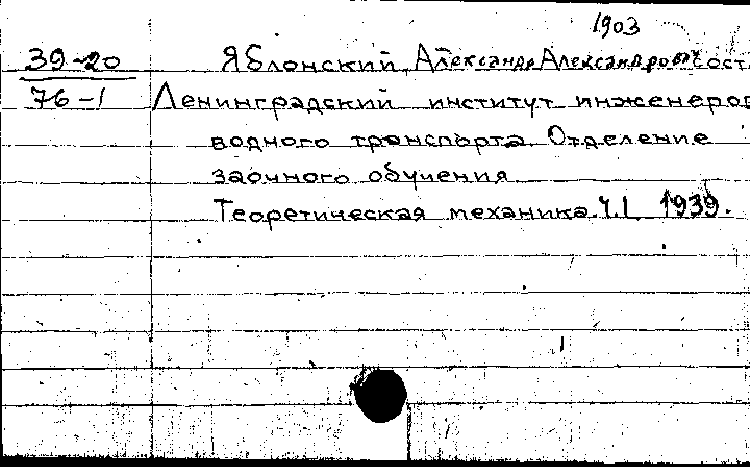 1903
39-20 Яблонский, Александр Александрович сост.
76-1 Ленинградский институт инженеров
водного транспорта. Отделение
заочного обучения
Теоретическая механика. Ч.I 1939.